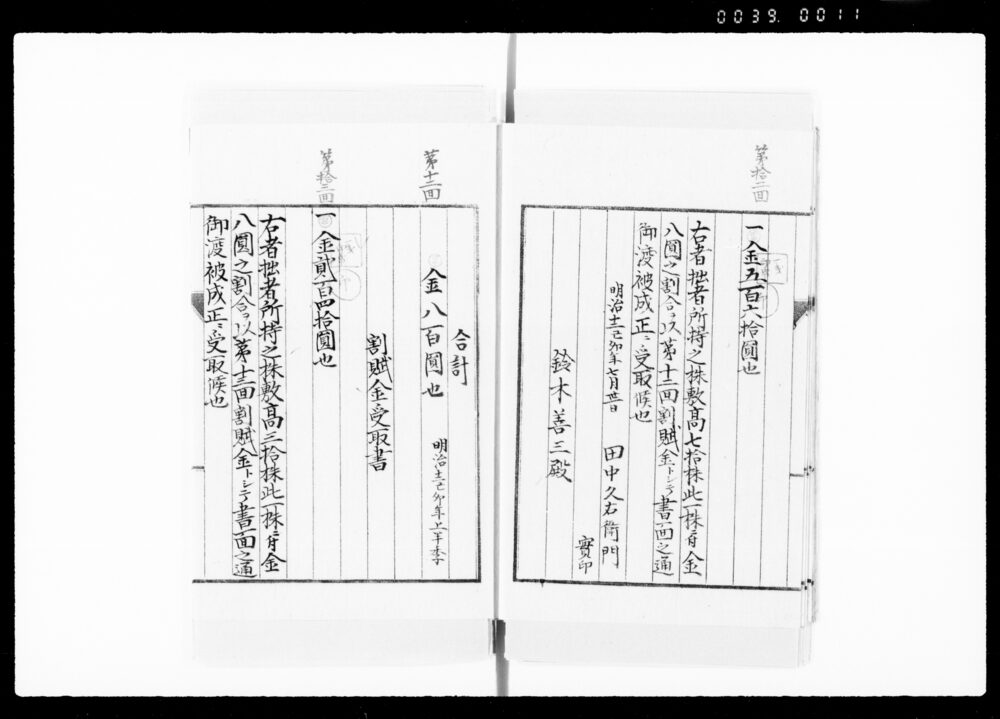 0039. 0011
第拾二回
一金五百六拾圓也
右者拙者所持之株敷高七拾株此一株ニ付金
八圓之割合ヲ以第十二回割賦金トシテ書面之通
御渡被成正ニ受取候也
明治十二己卯年七月卅一日
田中久右衛門
實印
鈴木善三殿
第十二回
合計
金八百圓也
明治十二己卯年上半季
割賦金受取書
第拾三回
一金貳百四拾圓也
右者拙者所持之株敷高三拾株此一株ニ付金
八圓之割合ヲ以第十三回割賦金トシテ書面之通
御渡被成正ニ受取候也